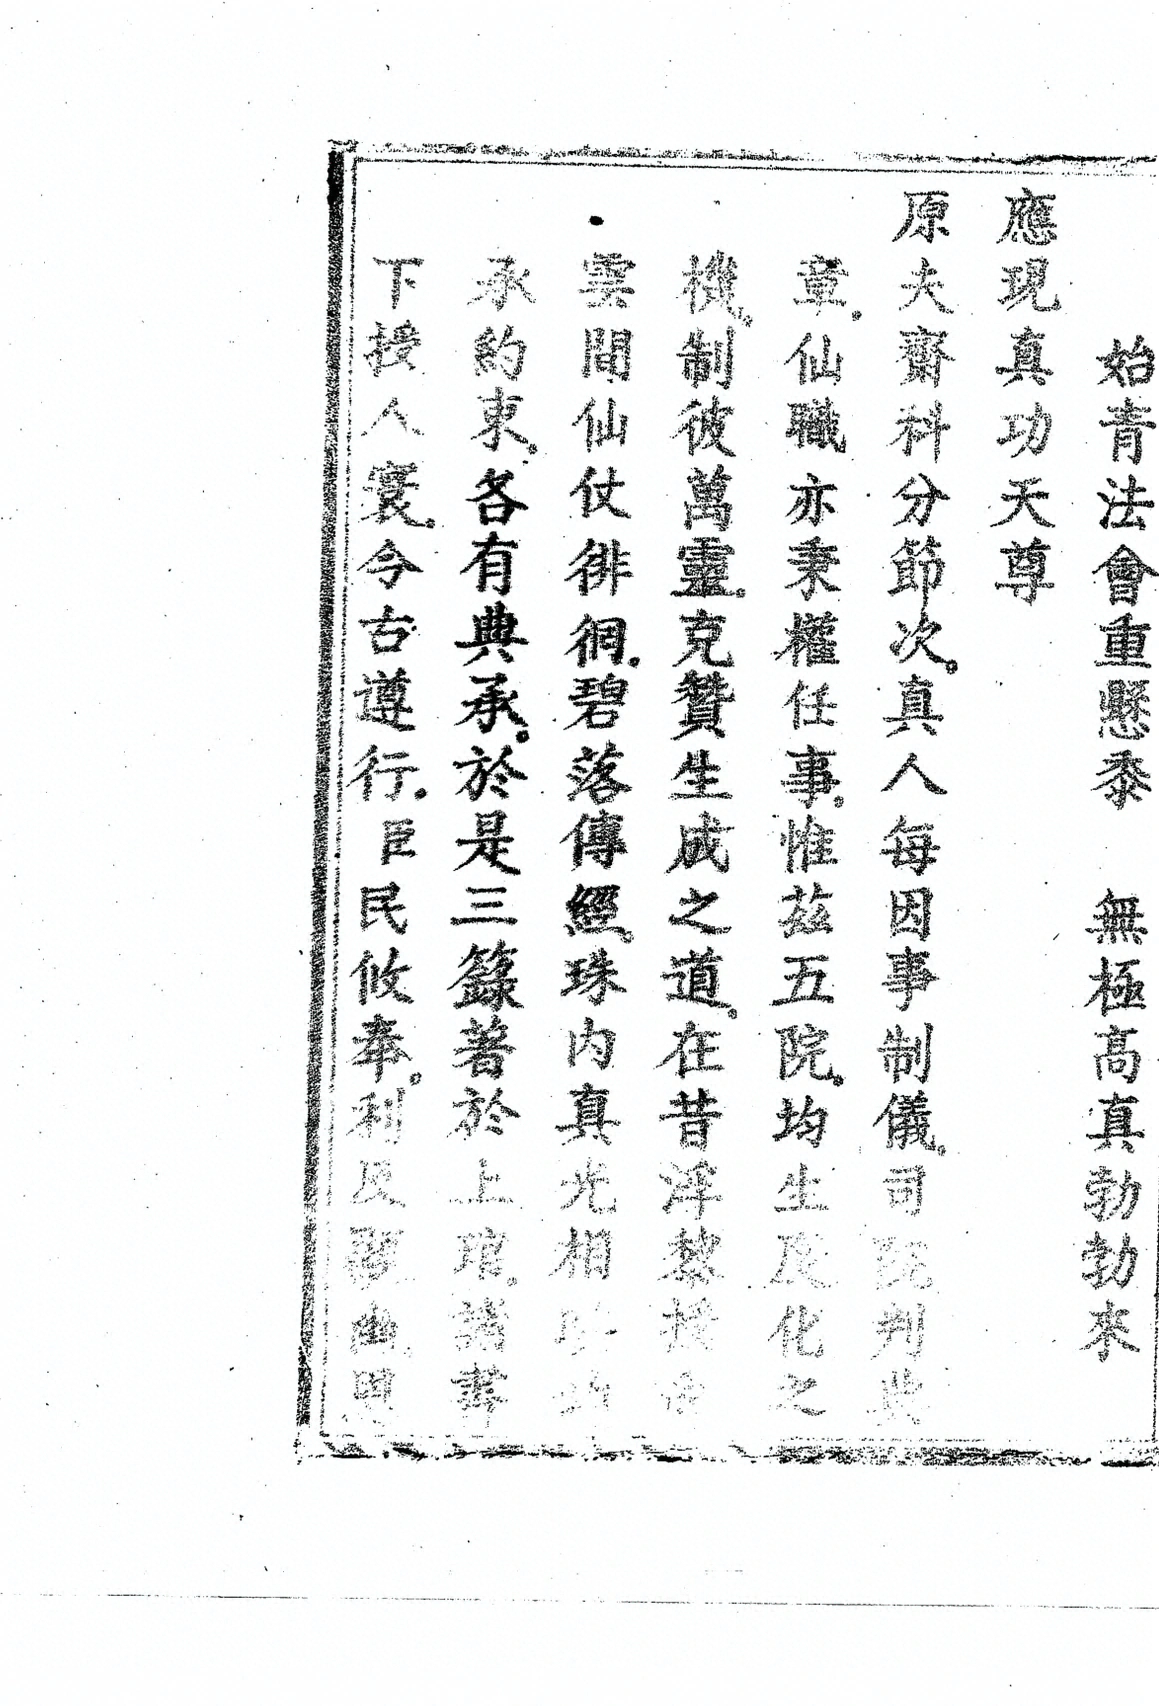 始青法會重懸黍　無極高真勃勃來
應現真功天尊
原夫齋科分節次。真人每因事制儀。司院判典
章。仙職亦秉權任事。惟茲五院。均生成化之
機。制彼萬靈。克贊生成之道。在昔浮黎授
雲間仙仗徘徊。碧落傳經。珠內真光相
承約束。各有典承。於是三籙著於上琅。諸書
下授人寰。今古遵行。臣民攸奉。利及顯幽。恩